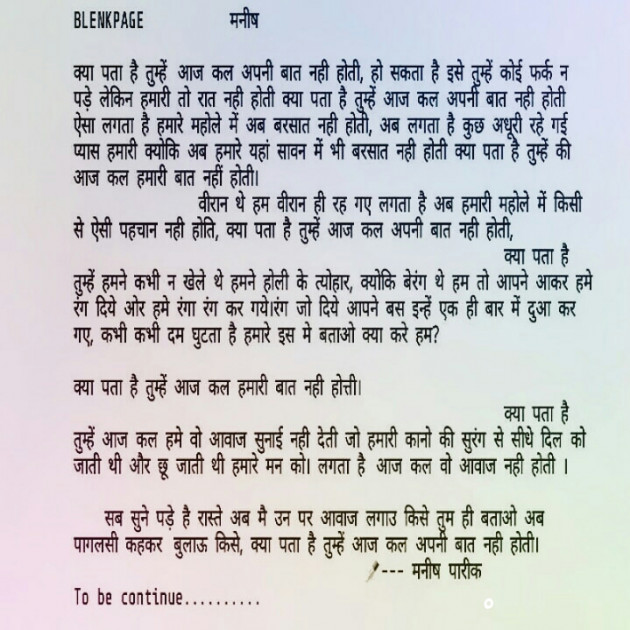 BLENKPAGE मनीष
क्या पता है तुम्हें आज कल अपनी बात नही होती, हो सकता है इसे तुम्हें कोई फर्क न
पड़े लेकिन हमारी तो रात नही होती क्या पता है तुम्हें आज कल अपनी बात नही होती
ऐसा लगता है हमारे महोले में अब बरसात नही होती, अब लगता है कुछ अधूरी रहे गई
प्यास हमारी क्योकि अब हमारे यहां सावन में भी बरसात नही होती क्या पता है तुम्हें की
आज कल हमारी बात नहीं होती।
वीरान थे हम वीरान ही रह गए लगता है अब हमारी महोले में किसी
से ऐसी पहचान नही होति, क्या पता है तुम्हें आज कल अपनी बात नही होती,
क्या पता है
तुम्हें हमने कभी न खेले थे हमने होली के त्योहार, क्योकि बेरंग थे हम तो आपने आकर हमे
रंग दिये ओर हमे रंगा रंग कर गये।रंग जो दिये आपने बस इन्हें एक ही बार में दुआ कर
गए, कभी कभी दम घुटता है हमारे इस मे बताओ क्या करे हम?
क्या पता है तुम्हें आज कल हमारी बात नही होत्ती।
क्या पता है
तुम्हें आज कल हमे वो आवाज सुनाई नही देती जो हमारी कानो की सुरंग से सीधे दिल को
जाती थी और छू जाती थी हमारे मन को। लगता है आज कल वो आवाज नही होती ।
सब सुने पड़े है रास्ते अब मै उन पर आवाज लगाउ किसे तुम ही बताओ अब
पागलसी कहकर बुलाऊ किसे, क्या पता है तुम्हें आज कल अपनी बात नही होती।
--- मनीष पारीक
To be continue..........